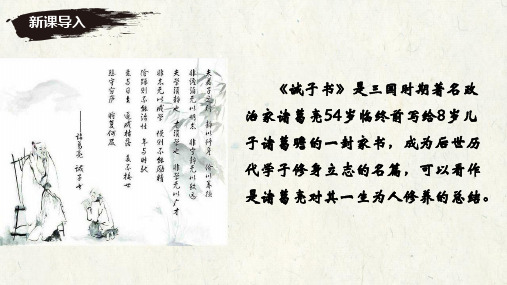 新课导入
夫君子之行 静以修身 俭以养德
非淡泊无以明志 非宁静无以致远
夫学须静也 才须学也 非学无以广才
非志无以成学 慢则不能励精
险躁则不能治性 年与时驰
意与日去 遂成枯落 多不接世
悲守穷庐 将复何及
——诸葛亮 诫子书
《诫子书》是三国时期著名政
治家诸葛亮54岁临终前写给8岁儿
子诸葛瞻的一封家书，成为后世历
代学子修身立志的名篇，可以看作
是诸葛亮对其一生为人修养的总结。